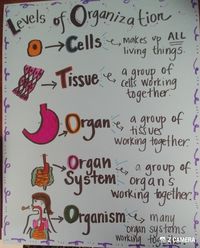 Levels of Organization
Cells makes up ALL
living things.
Tissue a group of
cells working
together.
Organ a group of
tissues
working together.
Organ
System a group of
organs
working together.
Organism many
organ systems
working together.
Z CAMERA